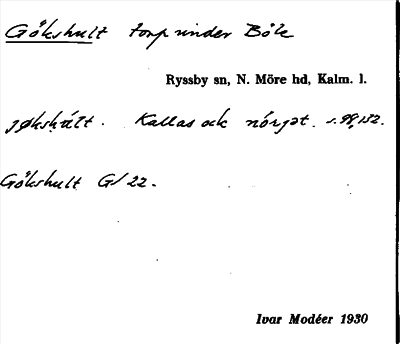 Gökshult torp under Böle
Ryssby sn, N. Möre hd, Kalm. l.
jøkshúlt. Kallas ock nórjət. s. 98, 132.
Gökshult G/22.
Ivar Modéer 1930